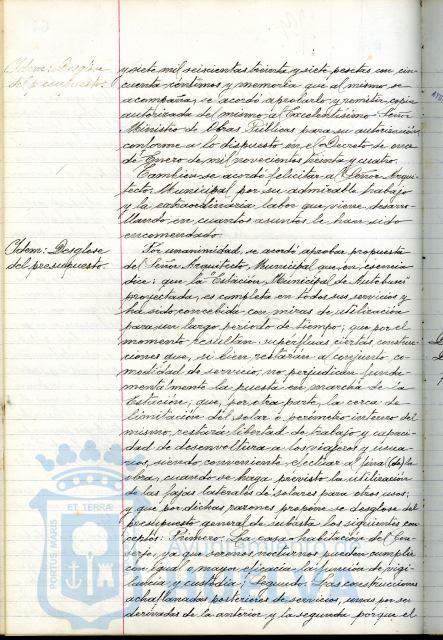 Idem: Desglose
del presupuesto.
y siete mil seiscientas treinta y siete pesetas con cin-
cuenta céntimos y memoria que al mismo se
acompaña, se acordó aprobarlo y remitir copia
autorizada del mismo al Excelentísimo Señor
Ministro de Obras Públicas para su autorización
conforme a lo dispuesto en el Decreto de once
de Enero de mil novecientos treinta y cuatro.
También se acordó felicitar al Señor Arqui-
tecto Municipal por su admirable trabajo
y la extraordinaria labor que viene desarro-
llando en cuantos asuntos le han sido
encomendado
Idem: Desglose
del presupuesto.
Por unanimidad, se acordó aprobar propuesta
del Señor Arquitecto Municipal que en esencia
dice: que la "Estación Municipal de Autobuses"
proyectada, es completa en todos sus servicios y
ha sido concebida con miras de utilización
para un largo periodo de tiempo; que por el
momento resultan superfluas ciertas construc-
ciones que, si bien restarán al conjunto, co-
modidad de servicio, no perjudican funda-
mentalmente la puesta en marcha de la
Estación; que, por otra parte, la cerca de
limitación del solar o perímetro interno del
mismo, restará libertad de trabajo y capaci-
dad de desenvoltura a los viajeros y usua-
rios, siendo conveniente efectuar al final de la
obra, cuando se haya previsto la utilización
de las fajas laterales de solares para otros usos;
y que por dichas razones propone se desglose del
presupuesto general de subasta los siguientes con-
ceptos: Primero: La casa-habitación del Con-
serje, ya que serenos nocturnos pueden cumplir
con igual o mayor eficacia la función de vigi-
lancia y custodia; Segundo: Las construcciones
achaflanadas posteriores de servicios, unas por ser
derivadas de la anterior y la segunda porque el
PORTUS MARIS
ET TERRÆ